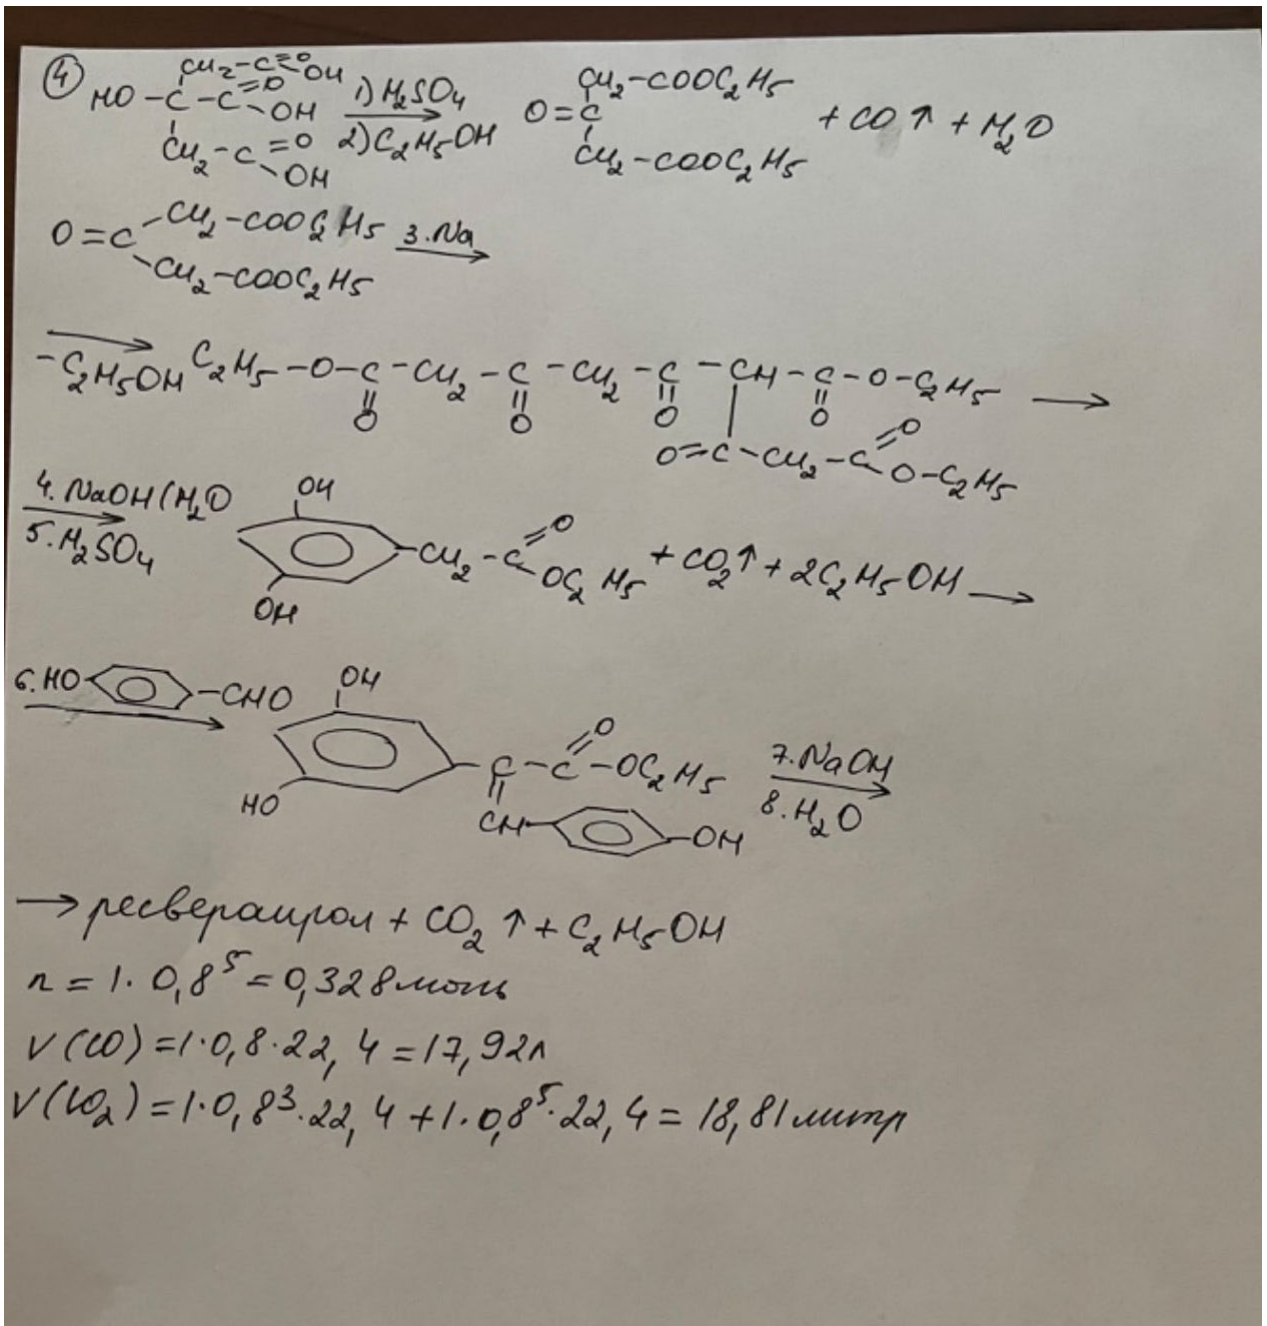 ④ HO-C(CH₂-C(=O)OH)(C(=O)-OH)-CH₂-C(=O)-OH 1) H₂SO₄ 2) C₂H₅OH → O=C(CH₂-COOC₂H₅)-CH₂-COOC₂H₅ + CO↑ + H₂O
O=C(-CH₂-COOC₂H₅)-CH₂-COOC₂H₅ 3. Na →
→ -C₂H₅OH C₂H₅-O-C(=O)-CH₂-C(=O)-CH₂-C(=O)-CH-C(=O)-O-C₂H₅ →
O=C-CH₂-C(=O)O-C₂H₅
4. NaOH(H₂O → 5. H₂SO₄ OH OH -CH₂-C(=O)OC₂H₅ + CO₂↑ + 2C₂H₅OH →
6. HO -CHO → OH HO -C-C(=O)-OC₂H₅ 7. NaOH → 8. H₂O
CH- -OH
→ ресвератрол + CO₂ ↑ + C₂H₅OH
n = 1 · 0,8⁵ = 0,328 моль
V(CO) = 1·0,8·22,4 = 17,92л
V(CO₂) = 1·0,8³·22,4 + 1·0,8⁵·22,4 = 18,81 литр